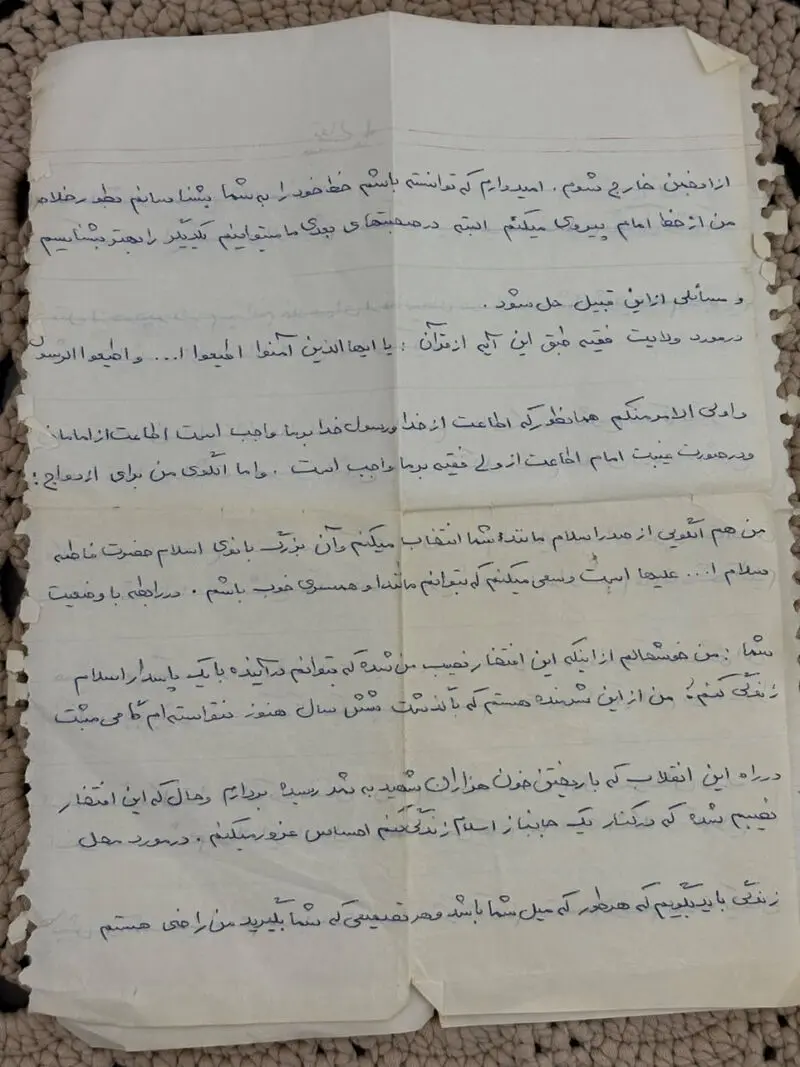 از انجمن خارج شوم. امیدوارم که توانسته باشم خط خود را به شما بشناسانم بطور خلاصه
من از خط امام پیروی میکنم البته در صحبتهای بعدی ما میتوانیم یکدیگر را بهتر بشناسیم
و مسائلی از این قبیل حل شود.
در مورد ولایت فقیه طبق این آیه از قرآن: یا ایها الذین آمنوا اطیعوا ا... و اطیعوا الرسول
و اولی الامر منکم همانطور که اطاعت از خدا و رسول خدا بر ما واجب است اطاعت از امامان
و در صورت غیبت امام اطاعت از ولی فقیه بر ما واجب است. و اما الگوی من برای ازدواج:
من هم الگویی از صدر اسلام مانند شما انتخاب میکنم و آن بزرگ بانوی اسلام حضرت فاطمه
سلام ا... علیها است و سعی میکنم که بتوانم مانند او همسری خوب باشم. در رابطه با وضعیت
شما: من خوشحالم از اینکه این افتخار نصیب من شده که بتوانم در آینده با یک پاسدار اسلام
زندگی کنم؛ من از این شرمنده هستم که با گذشت شش سال هنوز نتوانسته ام گامی مثبت
در راه این انقلاب که با ریختن خون هزاران شهید به ثمر رسیده بردارم و حال که این افتخار
نصیبم شده که در کنار یک جانباز اسلام زندگی کنم احساس غرور میکنم. در مورد محل
زندگی باید بگویم که هر طور که میل شما باشد و هر تصمیمی که شما بگیرید من راضی هستم